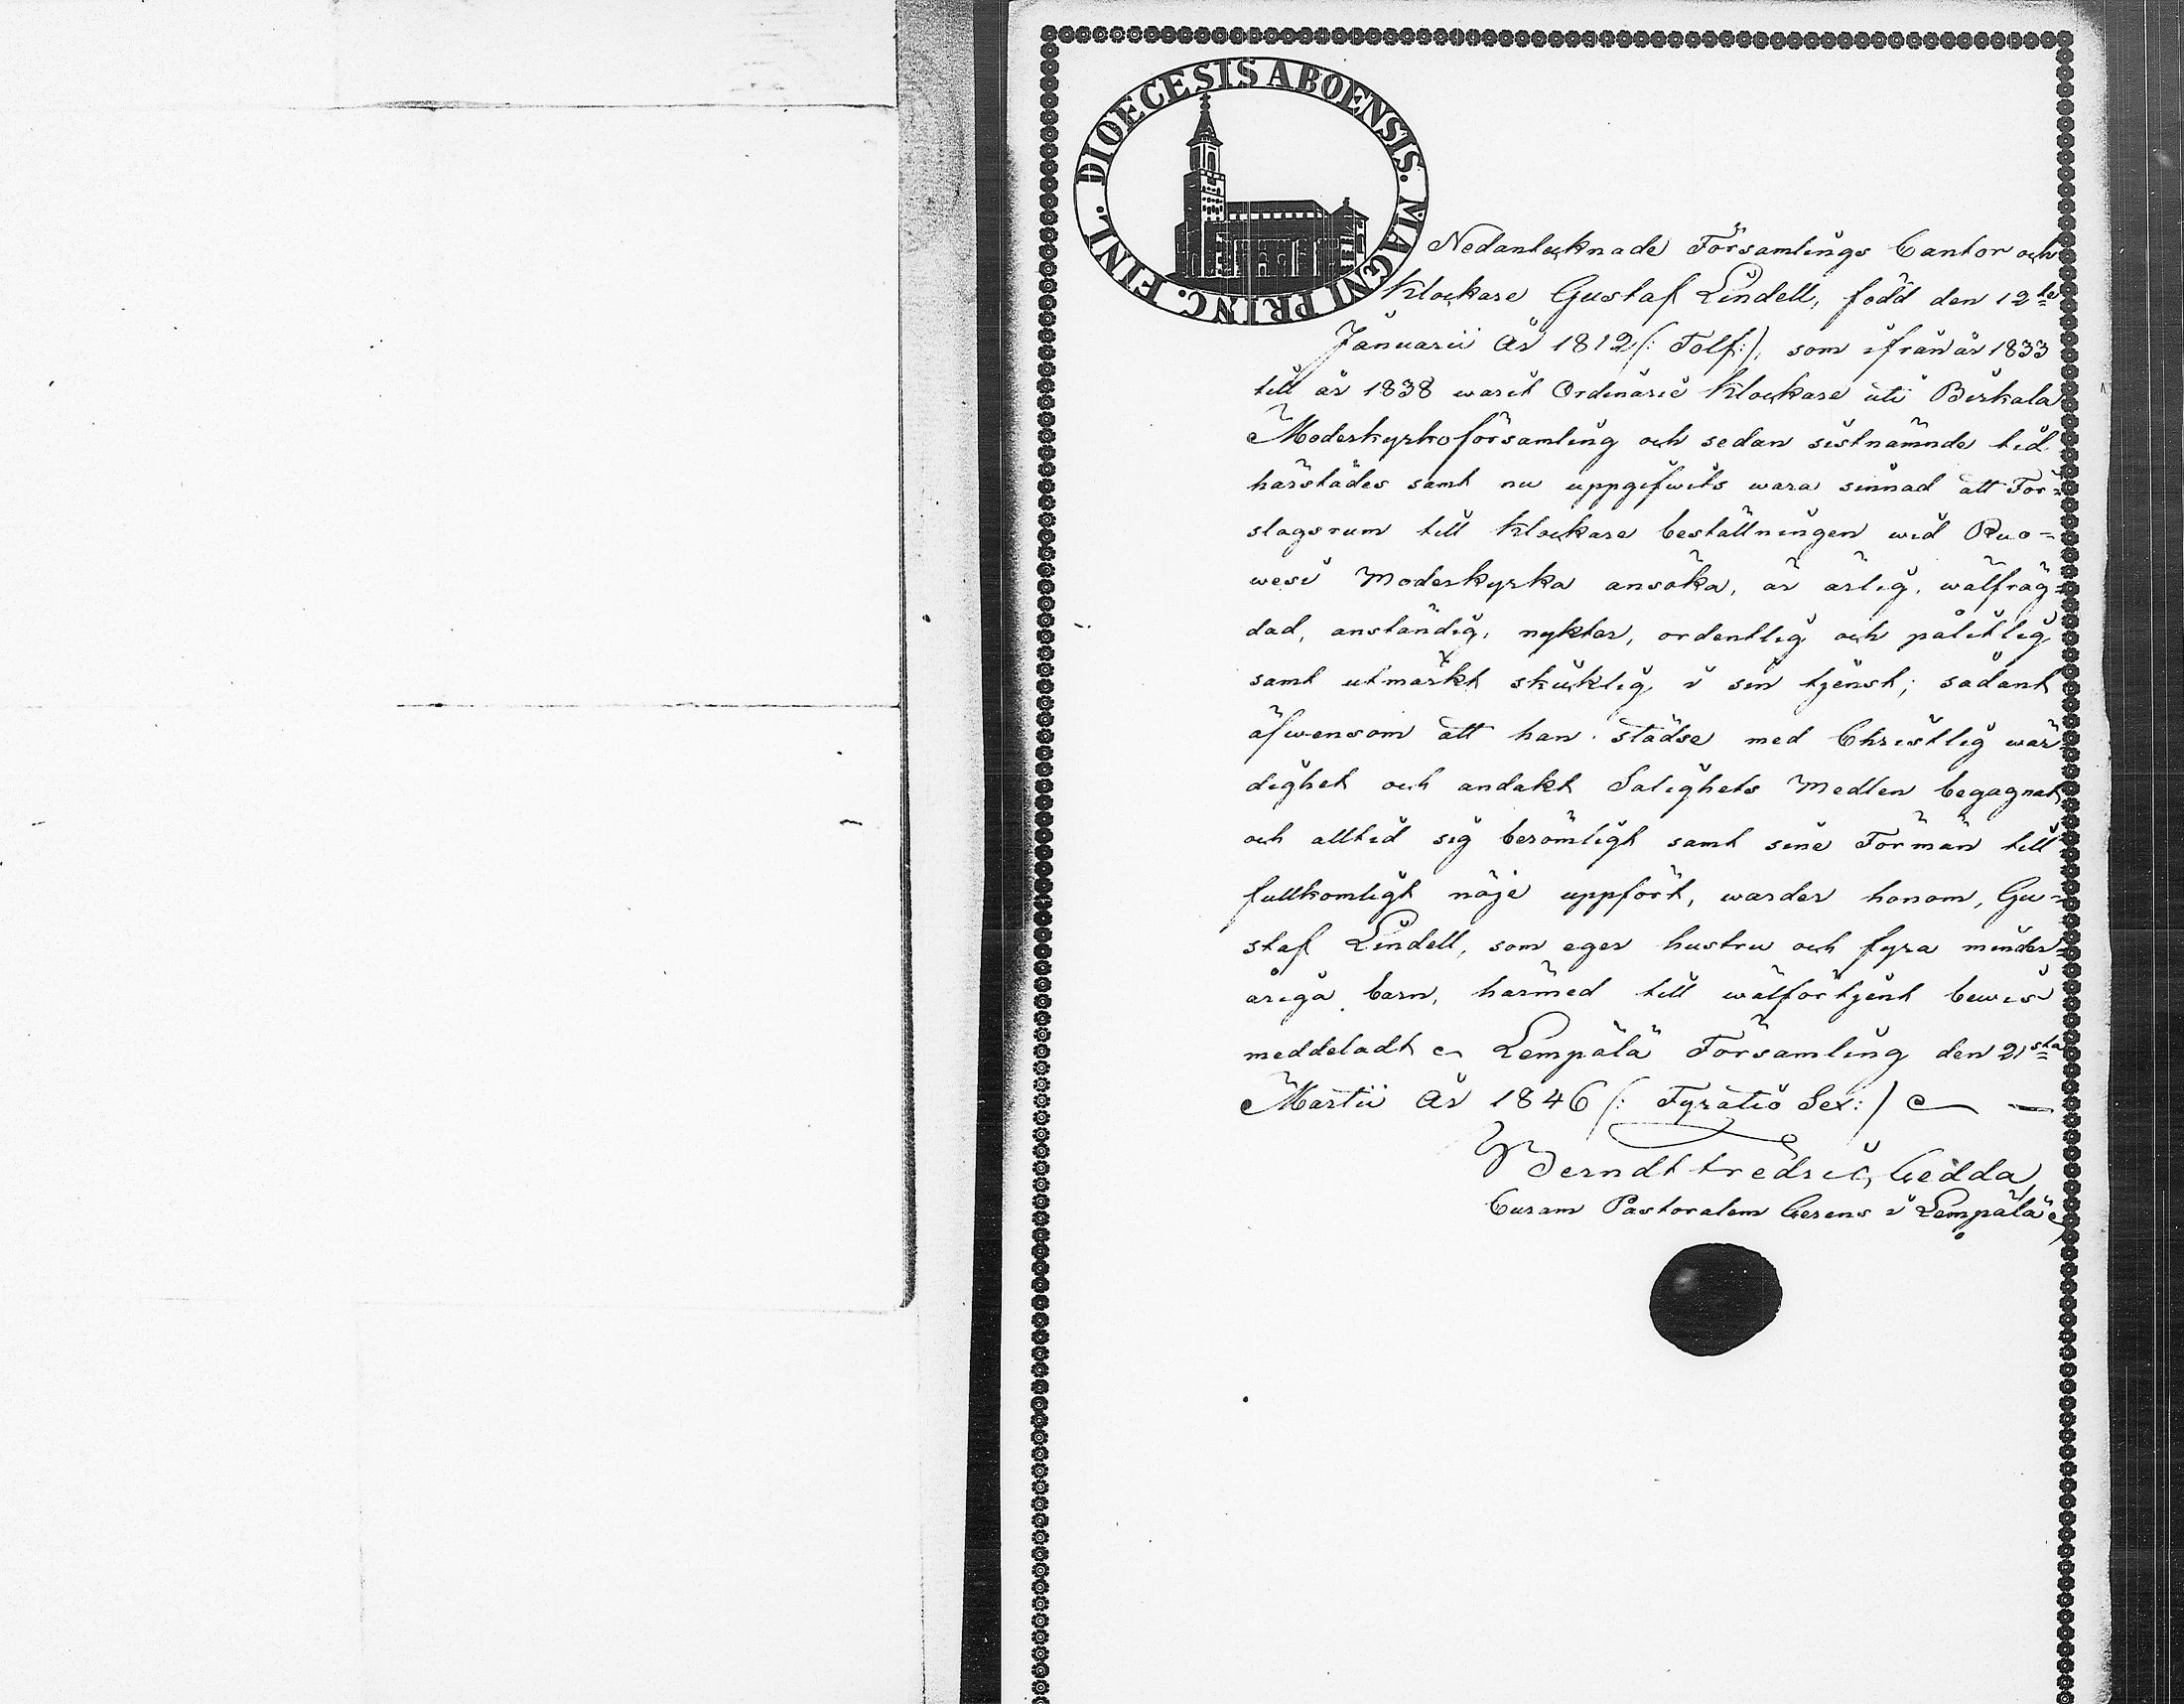 DIOECESIS ABOENSIS. MAGNI PRINC. FINL.
Nedantecknade Församlings Cantor och
Klockare Gustaf Lindell, född den 12te
Januarii År 1812 (: Tolf:), som ifrån år 1833
till år 1838 warit Ordinarie Klockare uti Birkala
Moderkyrkoförsamling och sedan sistnämnde tid
härstädes samt nu uppgifwits wara sinnad att För=
slagsrum till Klockare beställningen wid Ruo=
wesi Moderkyrka ansöka, är ärlig, wälfräg=
dad, anständig, nykter, ordentlig och pålitlig
samt utmärkt skicklig i sin tjenst; sådant
äfwensom att han städse med Christlig wär=
dighet och andakt Salighets Medlen begagnat
och alltid sig berömligt samt sine Förmän till
fullkomligt nöje uppfört, warder honom, Gu=
staf Lindell, som eger hustru och fyra minder=
åriga barn, härmed till wälförtjent bewis
meddeladt Lempälä Församling den 21sta
Martii År 1846 (: Fyratio Sex:)
Berndt Fredric Gedda
Curam Pastoralem Gerens i Lempälä